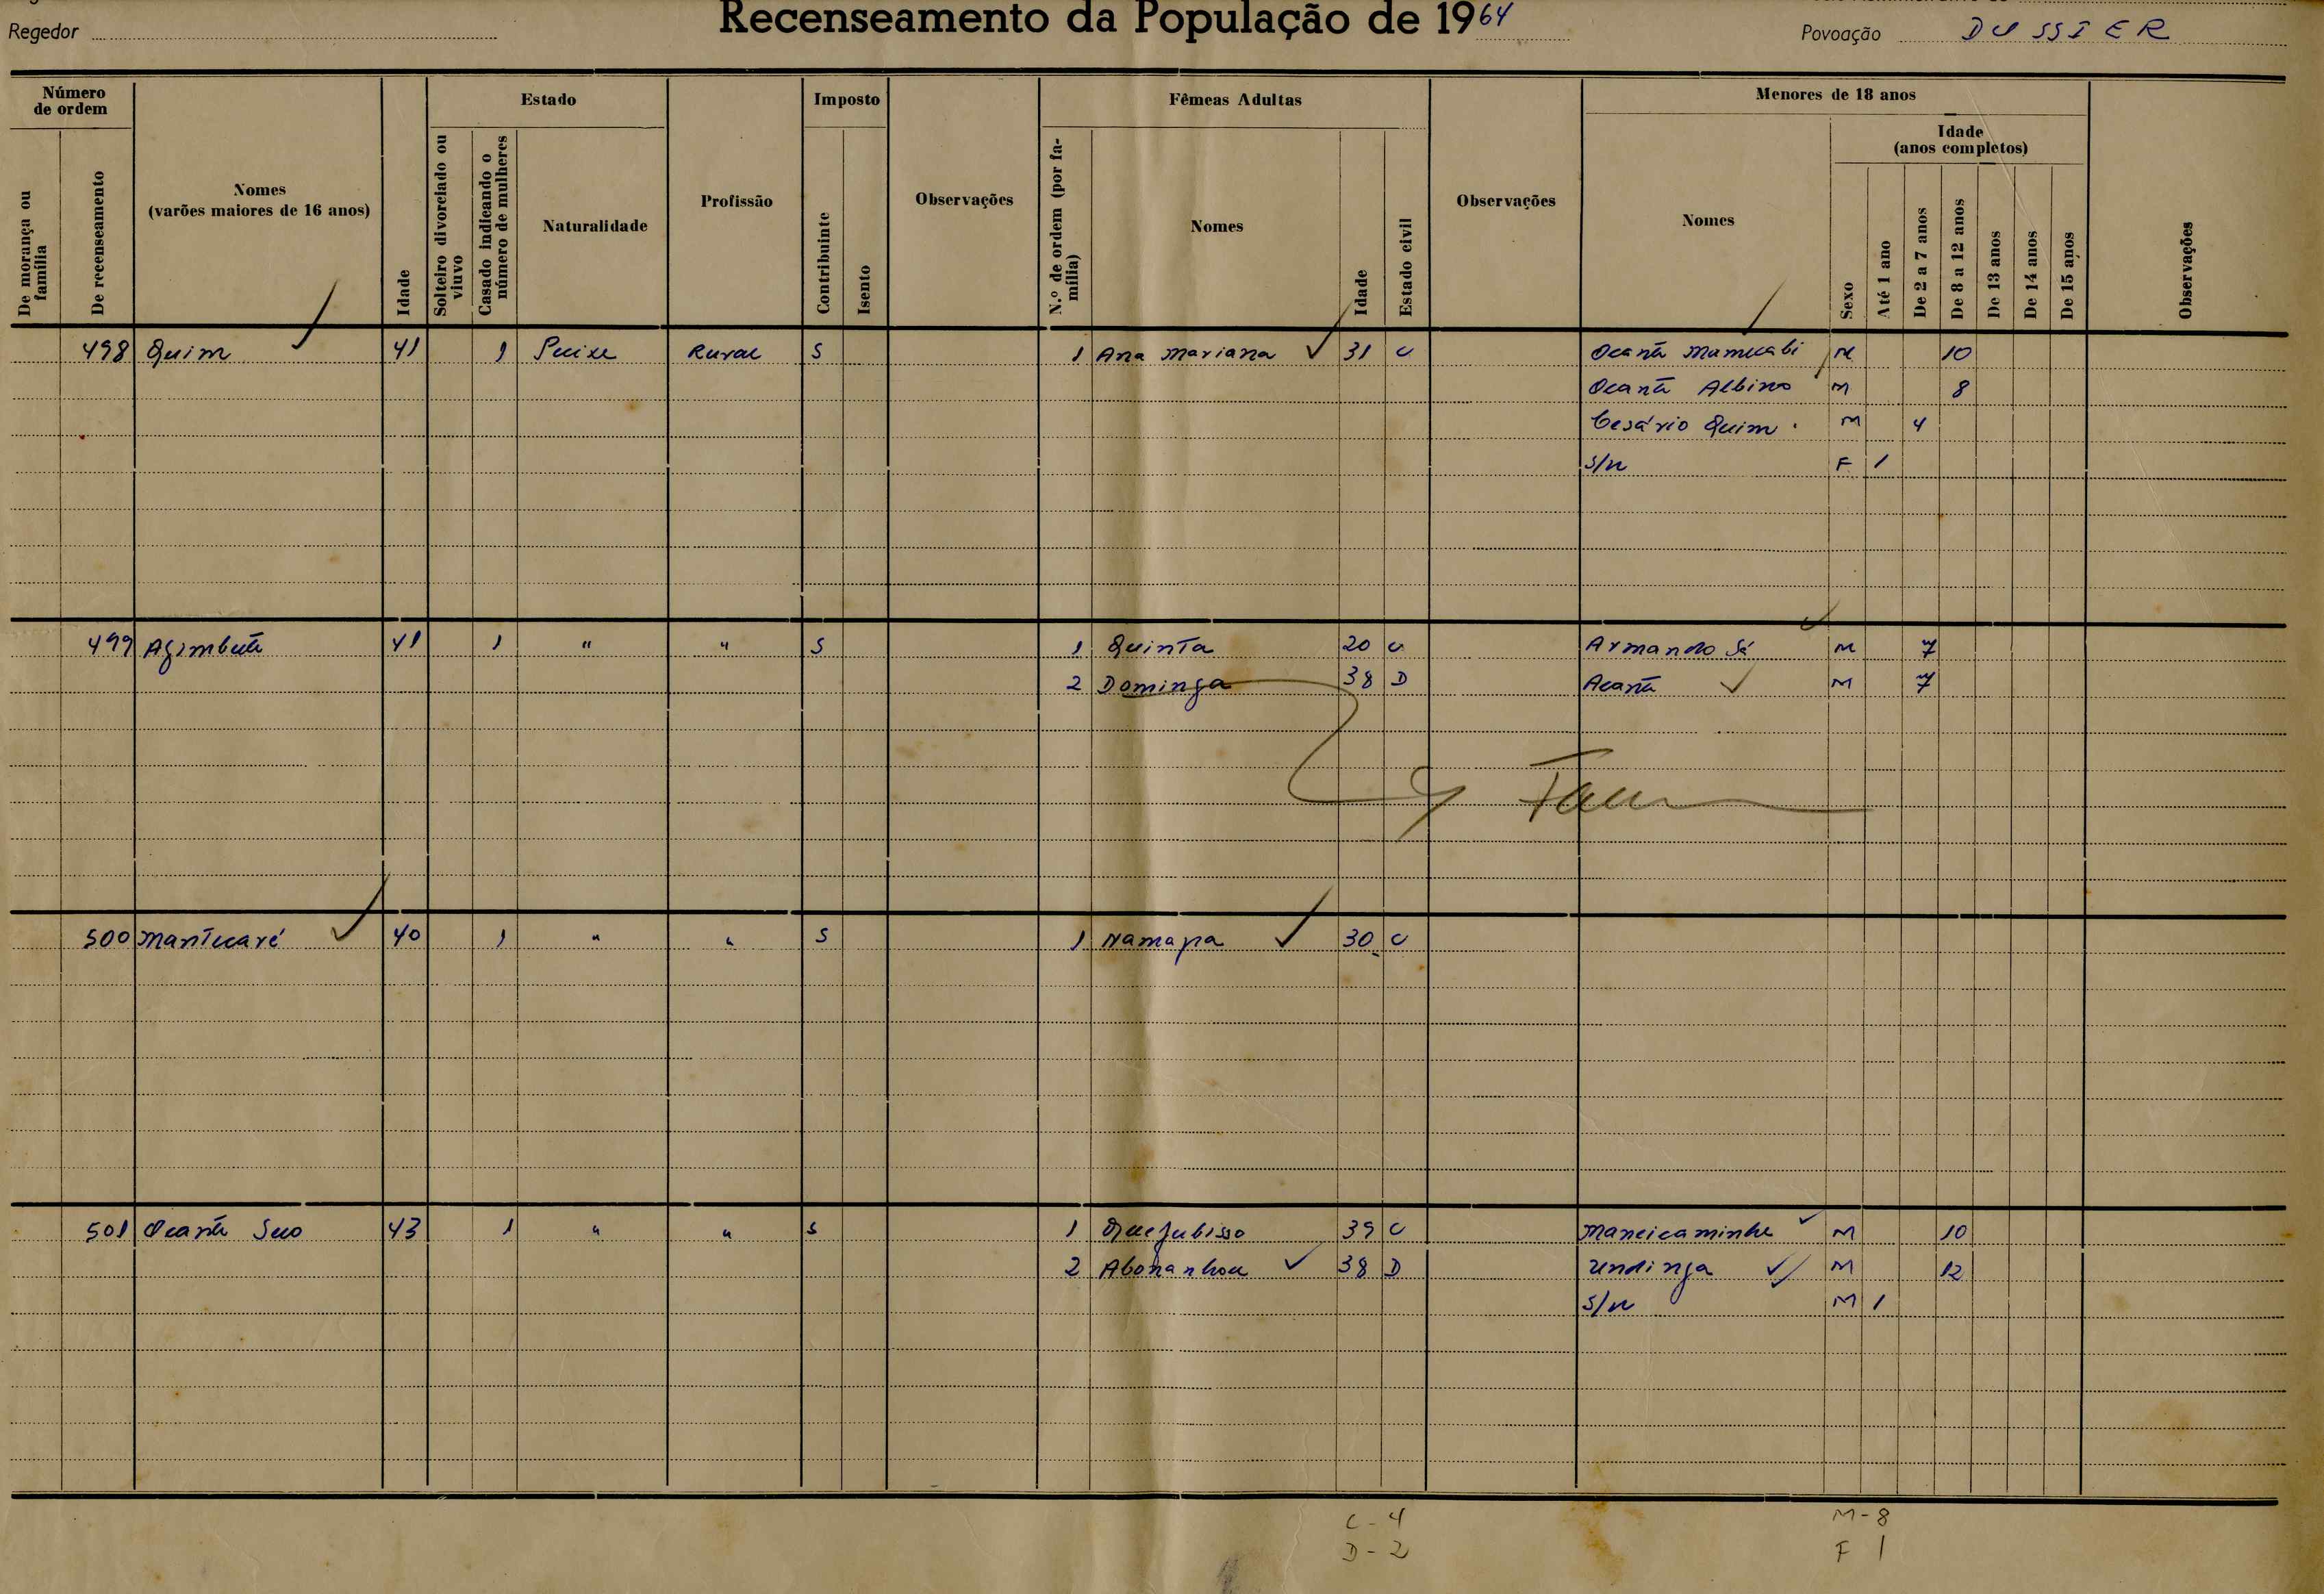 Regedor
Recenseamento da População de 1964
Povoação DUSSIER
Número de ordem
De morança ou família
De recenseamento
Nomes
(varões maiores de 16 anos)
Idade
Estado
Solteiro divorciado ou viuvo
Casado indicando o número de mulheres
Naturalidade
Profissão
Imposto
Contribuinte
Isento
Observações
Fêmeas Adultas
N.º de ordem (por família)
Nomes
Idade
Estado civil
Observações
Menores de 18 anos
Nomes
Sexo
Idade
(anos completos)
Até 1 ano
De 2 a 7 anos
De 8 a 12 anos
De 13 anos
De 14 anos
De 15 anos
Observações
498 Quim 41 1 Rural S 1 Ana Mariana 31 C Ocantê M 10
Ocantê Albino M 8
Cesário Quim M 4
S/N F 1
499 41 1 " " S 1 Quinta 20 C Armando Sá M 7
2 Dominga 38 D M 7
500 Mantucaré 40 1 " " S 1 Namapa 30 C
501 43 1 " " S 1 39 C M 10
2 38 D Undinga M 12
S/N M 1
C - 4 M - 8
D - 2 F 1